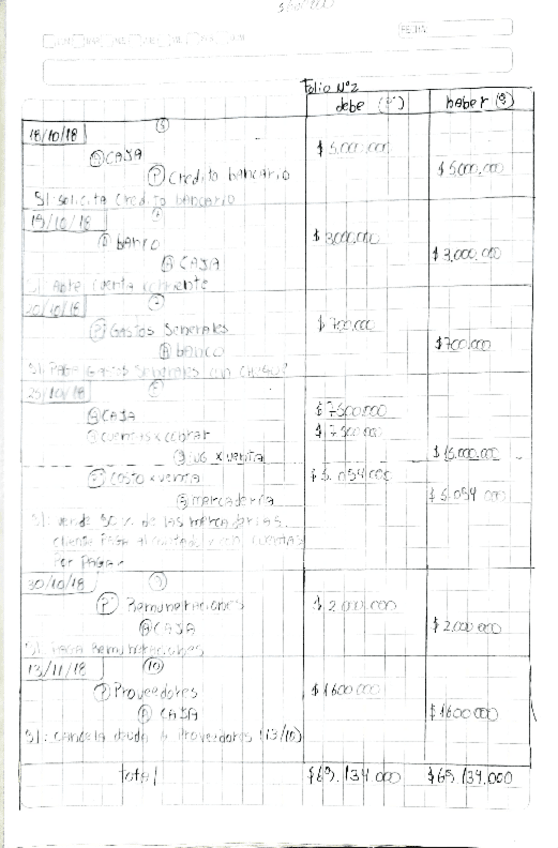 Folio N°2
debe ( ) haber ( )
18/10/18
(A) CAJA $ 5.000.000
(P) Credito bancario $ 5.000.000
S/: solicita credito bancario
19/10/18
banco $ 3.000.000
(A) CAJA $ 3.000.000
S/: Abre cuenta corriente
20/10/18
(P) Gastos Generales $ 700.000
(A) banco $ 700.000
S/: PAGA Gastos Generales con
25/10/18
(A) CAJA $ 7.500.000
cuentas x cobrar $ 7.500.000
x venta $ 15.000.000
costo x venta $ 5.054.000
mercadería $ 5.054.000
S/: vende 50% de las mercaderias
cliente PAGA al contado y con cuentas
Por PAGAR
30/10/18
(P) Remuneraciones $ 2.000.000
(A) CAJA $ 2.000.000
S/: PAGA Remuneraciones
13/11/18 (10)
(P) Proveedores $ 1600.000
(A) CAJA $ 1600.000
S/: cancela deuda a Proveedores (13/10)
total $ 65.134.000 $ 65.134.000